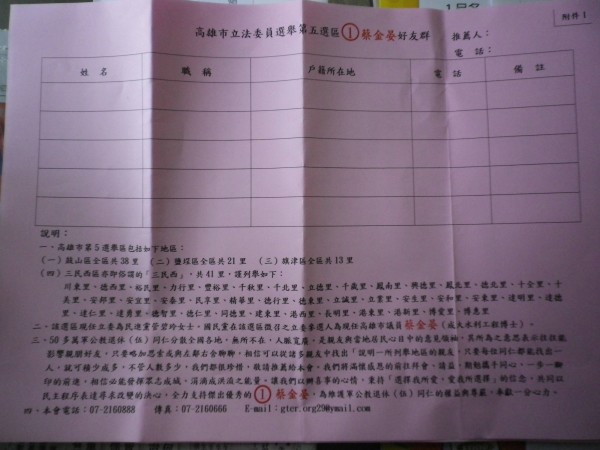 附件1
高雄市立法委員選舉第五選區①蔡金晏好友群 推薦人：
電話：
姓名 職稱 戶籍所在地 電話 備註
說明：
一、高雄市第5選舉區包括如下地區：
(一)鼓山區全區共38里 (二)鹽埕區全區共21里 (三)旗津區全區共13里
(四)三民西區亦即俗謂的「三民西」，共41里，謹列舉如下：
川東里、德西里、裕民里、力行里、豐裕里、千秋里、千北里、立德里、千歲里、鳳南里、興德里、鳳北里、德北里、十全里、十
美里、安邦里、安宜里、安泰里、民享里、精華里、德行里、德東里、立誠里、立業里、安生里、安和里、安東里、達明里、達德
里、達仁里、達勇里、德智里、德仁里、同德里、建東里、港西里、長明里、港東里、港新里、博愛里、博惠里
二、該選區現任立委為民進黨管碧玲女士，國民黨在該選區徵召之立委參選人為現任高雄市議員蔡金晏(成大水利工程博士)。
三、50多萬軍公教退休(伍)同仁分散全國各地，無所不在，人脈寬廣，是親友與當地居民心目中的意見領袖，其所為之意思表示往往能
影響親朋好友，只要略加思索或與左右舍聊聊，相信可以從諸多親友中找出「說明一所列舉地區的親友，只要每位同仁都能找出一
人，就可積少成多，不管人數多少，我們都很珍惜，敬請推薦給本會，我們將滿懷感恩的前往拜會、請益，期勉攜手同心，一步一腳
印的前進，相信必能發揮眾志成城、涓滴成洪流之能量，讓我們以辦喜事的心情，秉持「選擇我所愛，愛我所選擇」的信念，共同以
民主程序表達尋求改變的決心，全力支持傑出優秀的①蔡金晏，為維護軍公教退休(伍)同仁的權益與尊嚴，奉獻一份心力。
四、本會電話：07-2160888 傳真：07-2160666 E-mail：gter.org25@ymail.com